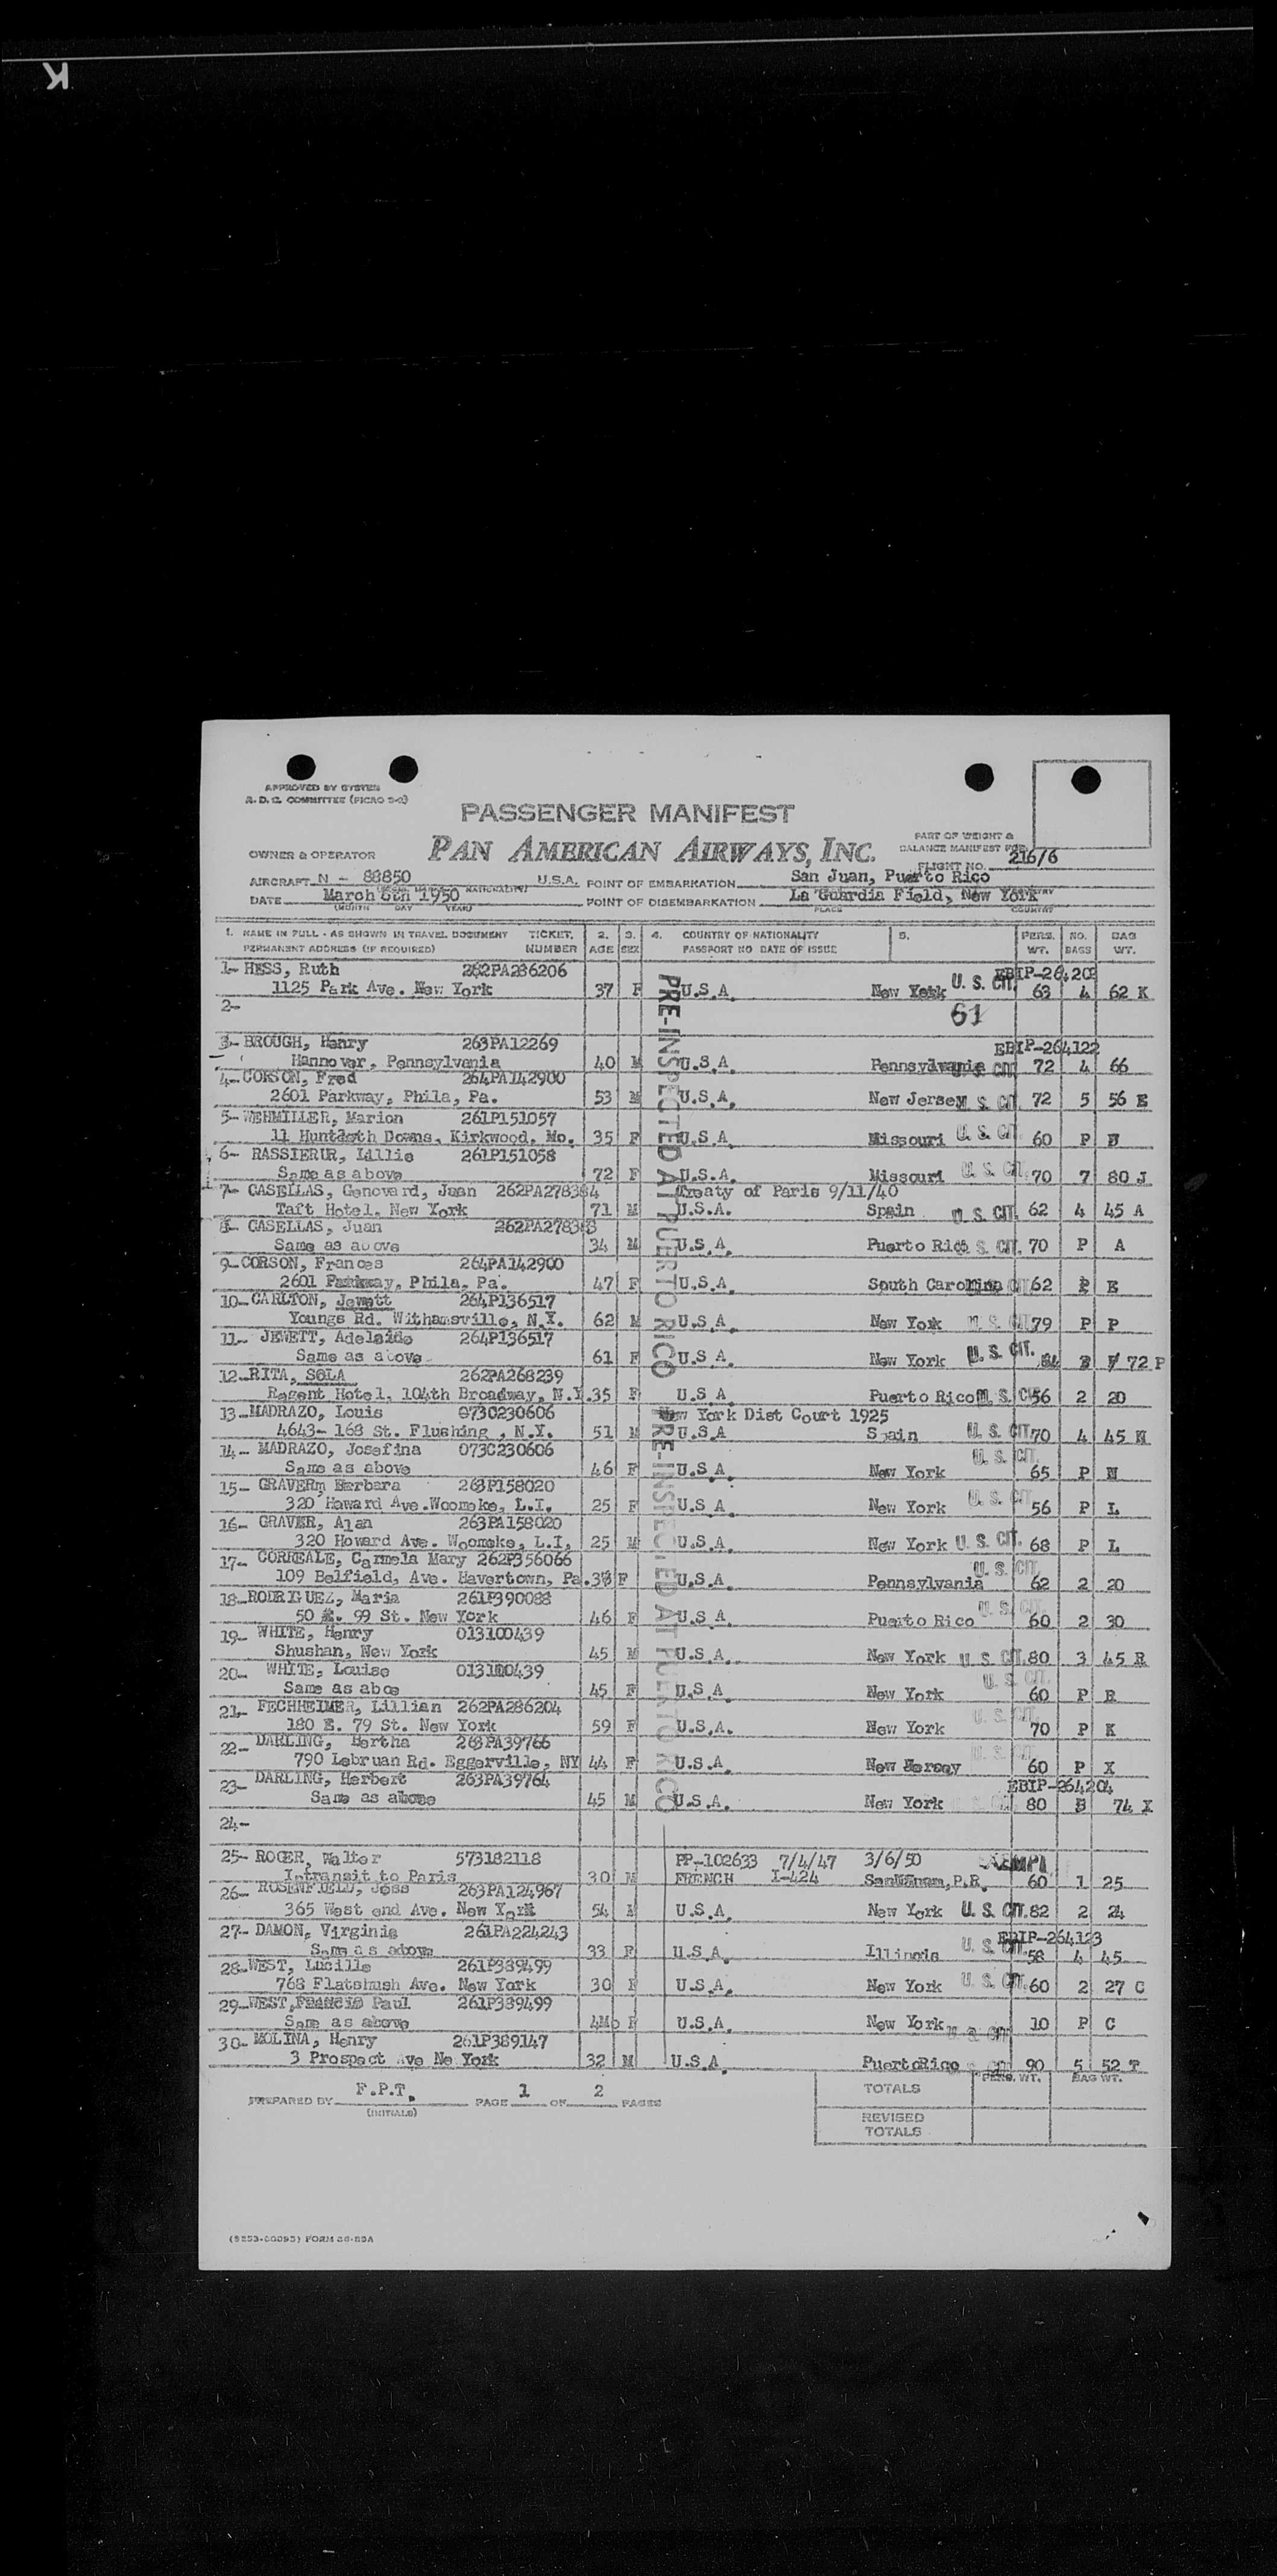 K
APPROVED BY SYSTEM
A. D. C. COMMITTEE (PICAO 2-2)
PASSENGER MANIFEST
PAN AMERICAN AIRWAYS, INC.
PART OF WEIGHT &
BALANCE MANIFEST FOR
FLIGHT NO. 216/6
OWNER & OPERATOR
AIRCRAFT N - 88850 U.S.A. POINT OF EMBARKATION San Juan, Puerto Rico
DATE March 6th 1950 POINT OF DISEMBARKATION La Guardia Field, New York
(MONTH DAY YEAR) PLACE COUNTRY
1. NAME IN FULL - AS SHOWN IN TRAVEL DOCUMENT TICKET. 2. 3. 4. COUNTRY OF NATIONALITY 5. PERS. NO. BAG
PERMANENT ADDRESS (IF REQUIRED) NUMBER AGE SEX PASSPORT NO DATE OF ISSUE WT. BAGS WT.
1- HESS, Ruth 262PA286206 EBIP-264203
1125 Park Ave. New York 37 F U.S.A. New York U. S. CIT. 63 4 62 K
2- 61
3- BROUGH, Henry 263PA12269 EBIP-264122
Hannover, Pennsylvania 40 M U.S.A. Pennsylvania U. S. CIT. 72 4 66
4- CORSON, Fred 264PA142900
2601 Parkway, Phila, Pa. 53 M U.S.A. New Jersey U. S. CIT. 72 5 56 E
5- WEHMILLER, Marion 261P151057
11 Downs, Kirkwood, Mo. 35 F U.S.A. Missouri U. S. CIT. 60 P
6- RASSIERUR, Lillie 261P151058
Same as above 72 F U.S.A. Missouri U. S. CIT. 70 7 80 J
7- CASELLAS, Genovard, Juan 262PA278384 Treaty of Paris 9/11/40
Taft Hotel, New York 71 M U.S.A. Spain U. S. CIT. 62 4 45 A
8- CASELLAS, Juan 262PA278383
Same as above 34 M U.S.A. Puerto Rico U. S. CIT. 70 P A
9- CORSON, Frances 264PA142900
2601 Parkway, Phila, Pa. 47 F U.S.A. South Carolina CIT 62 P E
10- CARLTON, Jewett 264P136517
Youngs Rd. Withamsville, N.Y. 62 M U.S.A. New York U. S. CIT. 79 P P
11- JEWETT, Adelaide 264P136517
Same as above 61 F U.S.A. New York U. S. CIT. 72 P
12- RITA, SOLA 262PA268239
Regent Hotel, 104th Broadway, N.Y. 35 F U.S.A. Puerto Rico U. S. CIT 56 2 20
13- MADRAZO, Louis 073C230606 New York Dist Court 1925
4643- 168 St. Flushing , N.Y. 51 M U.S.A Spain U. S. CIT. 70 4 45 N
14- MADRAZO, Josefina 073C230606
Same as above 46 F U.S.A. New York U. S. CIT. 65 P N
15- GRAVERm Barbara 263P158020
320 Howard Ave.Woomeke, L.I. 25 F U.S.A. New York U. S. CIT 56 P L
16- GRAVER, Alan 263PA158020
320 Howard Ave. Woomeke, L.I. 25 M U.S.A. New York U. S. CIT. 68 P L
17- CORREALE, Carmela Mary 262P356066
109 Belfield, Ave. Havertown, Pa. F U.S.A. Pennsylvania U. S. CIT. 62 2 20
18- RODRIGUEZ, Maria 261P390088
50 E. 99 St. New York 46 F U.S.A. Puerto Rico U. S. CIT. 60 2 30
19- WHITE, Henry 013100439
Shushan, New York 45 M U.S.A. New York U. S. CIT. 80 3 45 R
20- WHITE, Louise 013100439
Same as aboe 45 F U.S.A. New York U. S. CIT. 60 P R
21- FECHHEIMER, Lillian 262PA286204
180 E. 79 St. New York 59 F U.S.A. New York U. S. CIT. 70 P K
22- DARLING, Bertha 263PA39766
790 Lebruan Rd. Eggerville, NY 44 F U.S.A. New Jersey U. S. CIT 60 P X
23- DARLING, Herbert 263PA39764 EBIP-264204
Same as above 45 M U.S.A. New York S. CIT. 80 74 X
24-
25- ROGER, Walter 573182118 PP-102633 7/4/47 3/6/50
Intransit to Paris 30 M FRENCH I-424 P.R. 60 1 25
26- ROSENFIELD, Jess 263PA124967
365 West end Ave. New York 54 M U.S.A. New York U. S. CIT. 82 2 24
27- DAMON, Virginia 261PA224243 EBIP-264123
Same as above 33 F U.S.A. Illinois U. S. CIT. 58 4 45
28- WEST, Lucille 261P389499
768 Flatshush Ave. New York 30 F U.S.A. New York U. S. CIT. 60 2 27 C
29- WEST, Francis Paul 261P389499
Same as above 4Mo F U.S.A. New York U. S. CIT 10 P C
30- MOLINA, Henry 261P389147
3 Prospect Ave Ne York 32 M U.S.A. PuertoRico S. CIT 90 5 52 T
PRE-INSPECTED AT PUERTO RICO
PRE-INSPECTED AT PUERTO RICO
PREPARED BY F.P.T. PAGE 1 OF 2 PAGES
(INITIALS)
PERS. WT. BAG WT.
TOTALS
REVISED
TOTALS